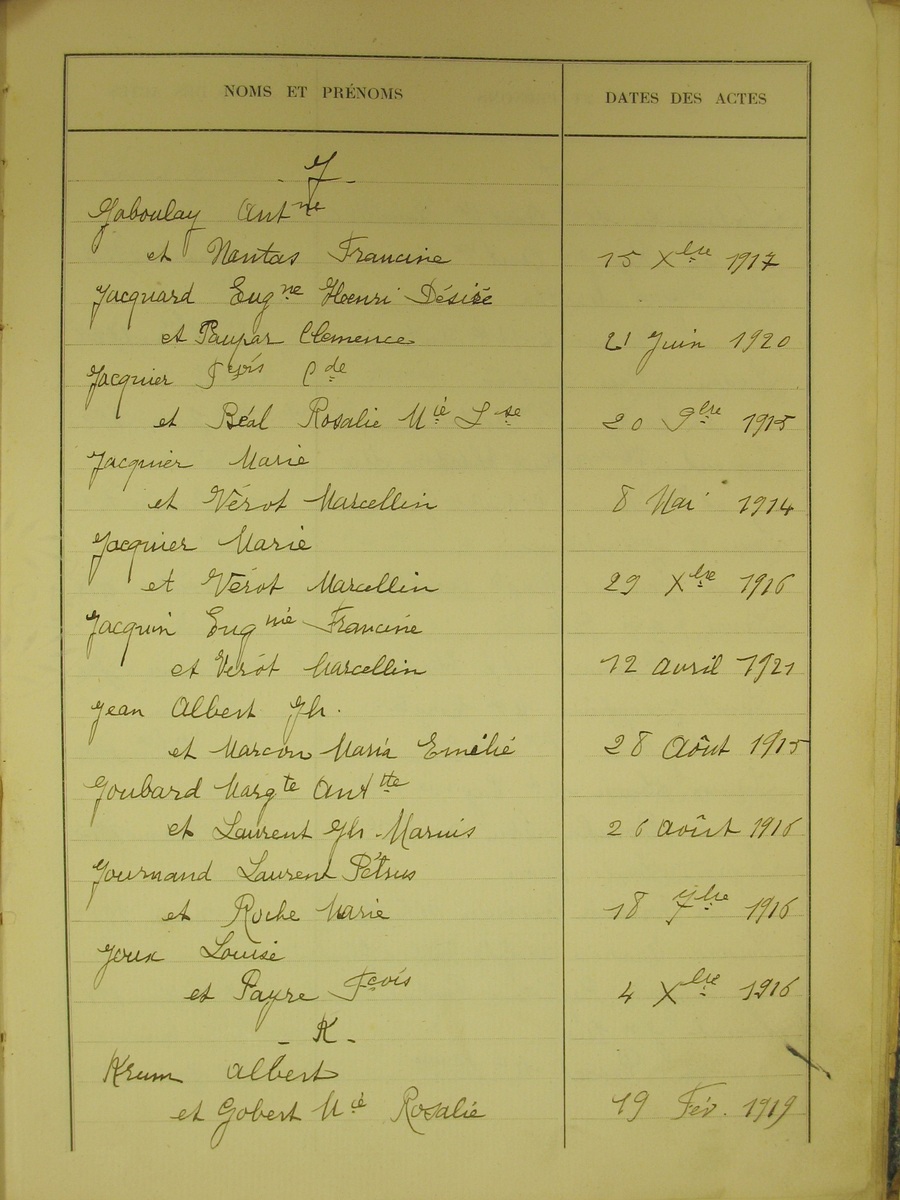 NOMS ET PRÉNOMS DATES DES ACTES
- J -
Jaboulay Antne
et Nantas Francine 15 Xbre 1917
Jacquard Eugne Henri Désiré
et Paupar Clemence 21 Juin 1920
Jacquier Fçois Cde
et Béal Rosalie Mie Lse 20 9bre 1915
Jacquier Marie
et Vérot Marcellin 8 Mai 1914
Jacquier Marie
et Vérot Marcellin 29 Xbre 1916
Jacquin Eugnie Francine
et Vérot Marcellin 12 avril 1921
Jean Albert Jh.
et Marcon Maria Emélié 28 Août 1915
Joubard Margte Anttte
et Laurent Jh - Marius 26 août 1916
Journand Laurent Pétrus
et Roche Marie 18 7bre 1916
Joux Louise
et Payre Fçois 4 Xbre 1916
- K -
Krum Albert
et Gobert Mie Rosalie 19 Fév. 1919